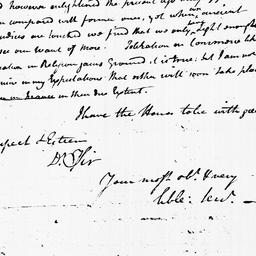 d however enlightened the present age may
n compared with former ones, yet when ancient
udices are touched we find that we only
see our want of more. Toleration in Commerce like
ation in Religion gains Ground, it is true; but I am not
uine in my Expectations that either will soon take place
in France in their due Extent.
I have the Honor to be with gre
spect & Esteem
Dr Sir
Your most obt & very
hble: Servt.